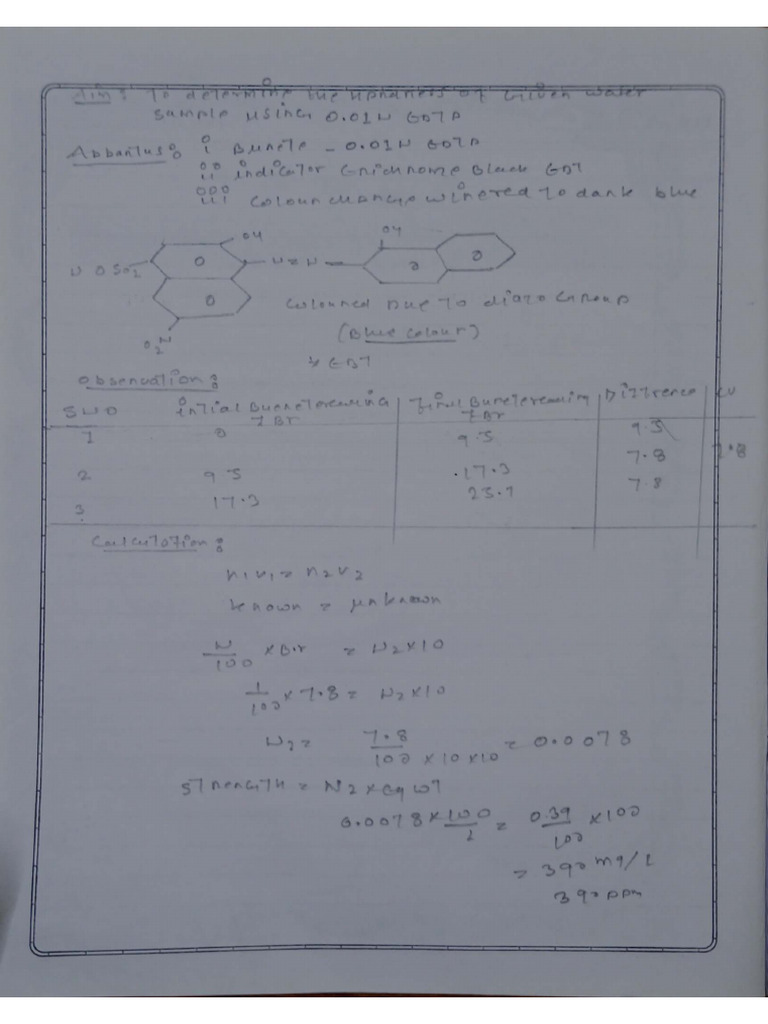 Aim: To determine the Hardness of Given water
sample using 0.01N EDTA
Abbaratus: i Burete - 0.01N EDTA
ii indicator Erichrome Black EDT
iii Colour change wine red to dark blue
OH OH
N O SO2 - N=N -
O2N
Coloured Due to diazo Group
(Blue colour)
EBT
Observation:
SNO intial Buereterearing Final Bureterearing Diffrence CV
I BR F BR
1 0 9.5 9.5
2 9.5 17.3 7.8 7.8
3. 17.3 25.1 7.8
Calculation:
N1V1 = N2V2
known = unknown
N/100 × B.r = N2×10
1/100 × 7.8 = N2×10
N2 = 7.8/100×10×10 = 0.0078
Strength = N2×Eq WT
0.0078×100/2 = 0.39/100 ×100
= 390 mg/L
390 ppm